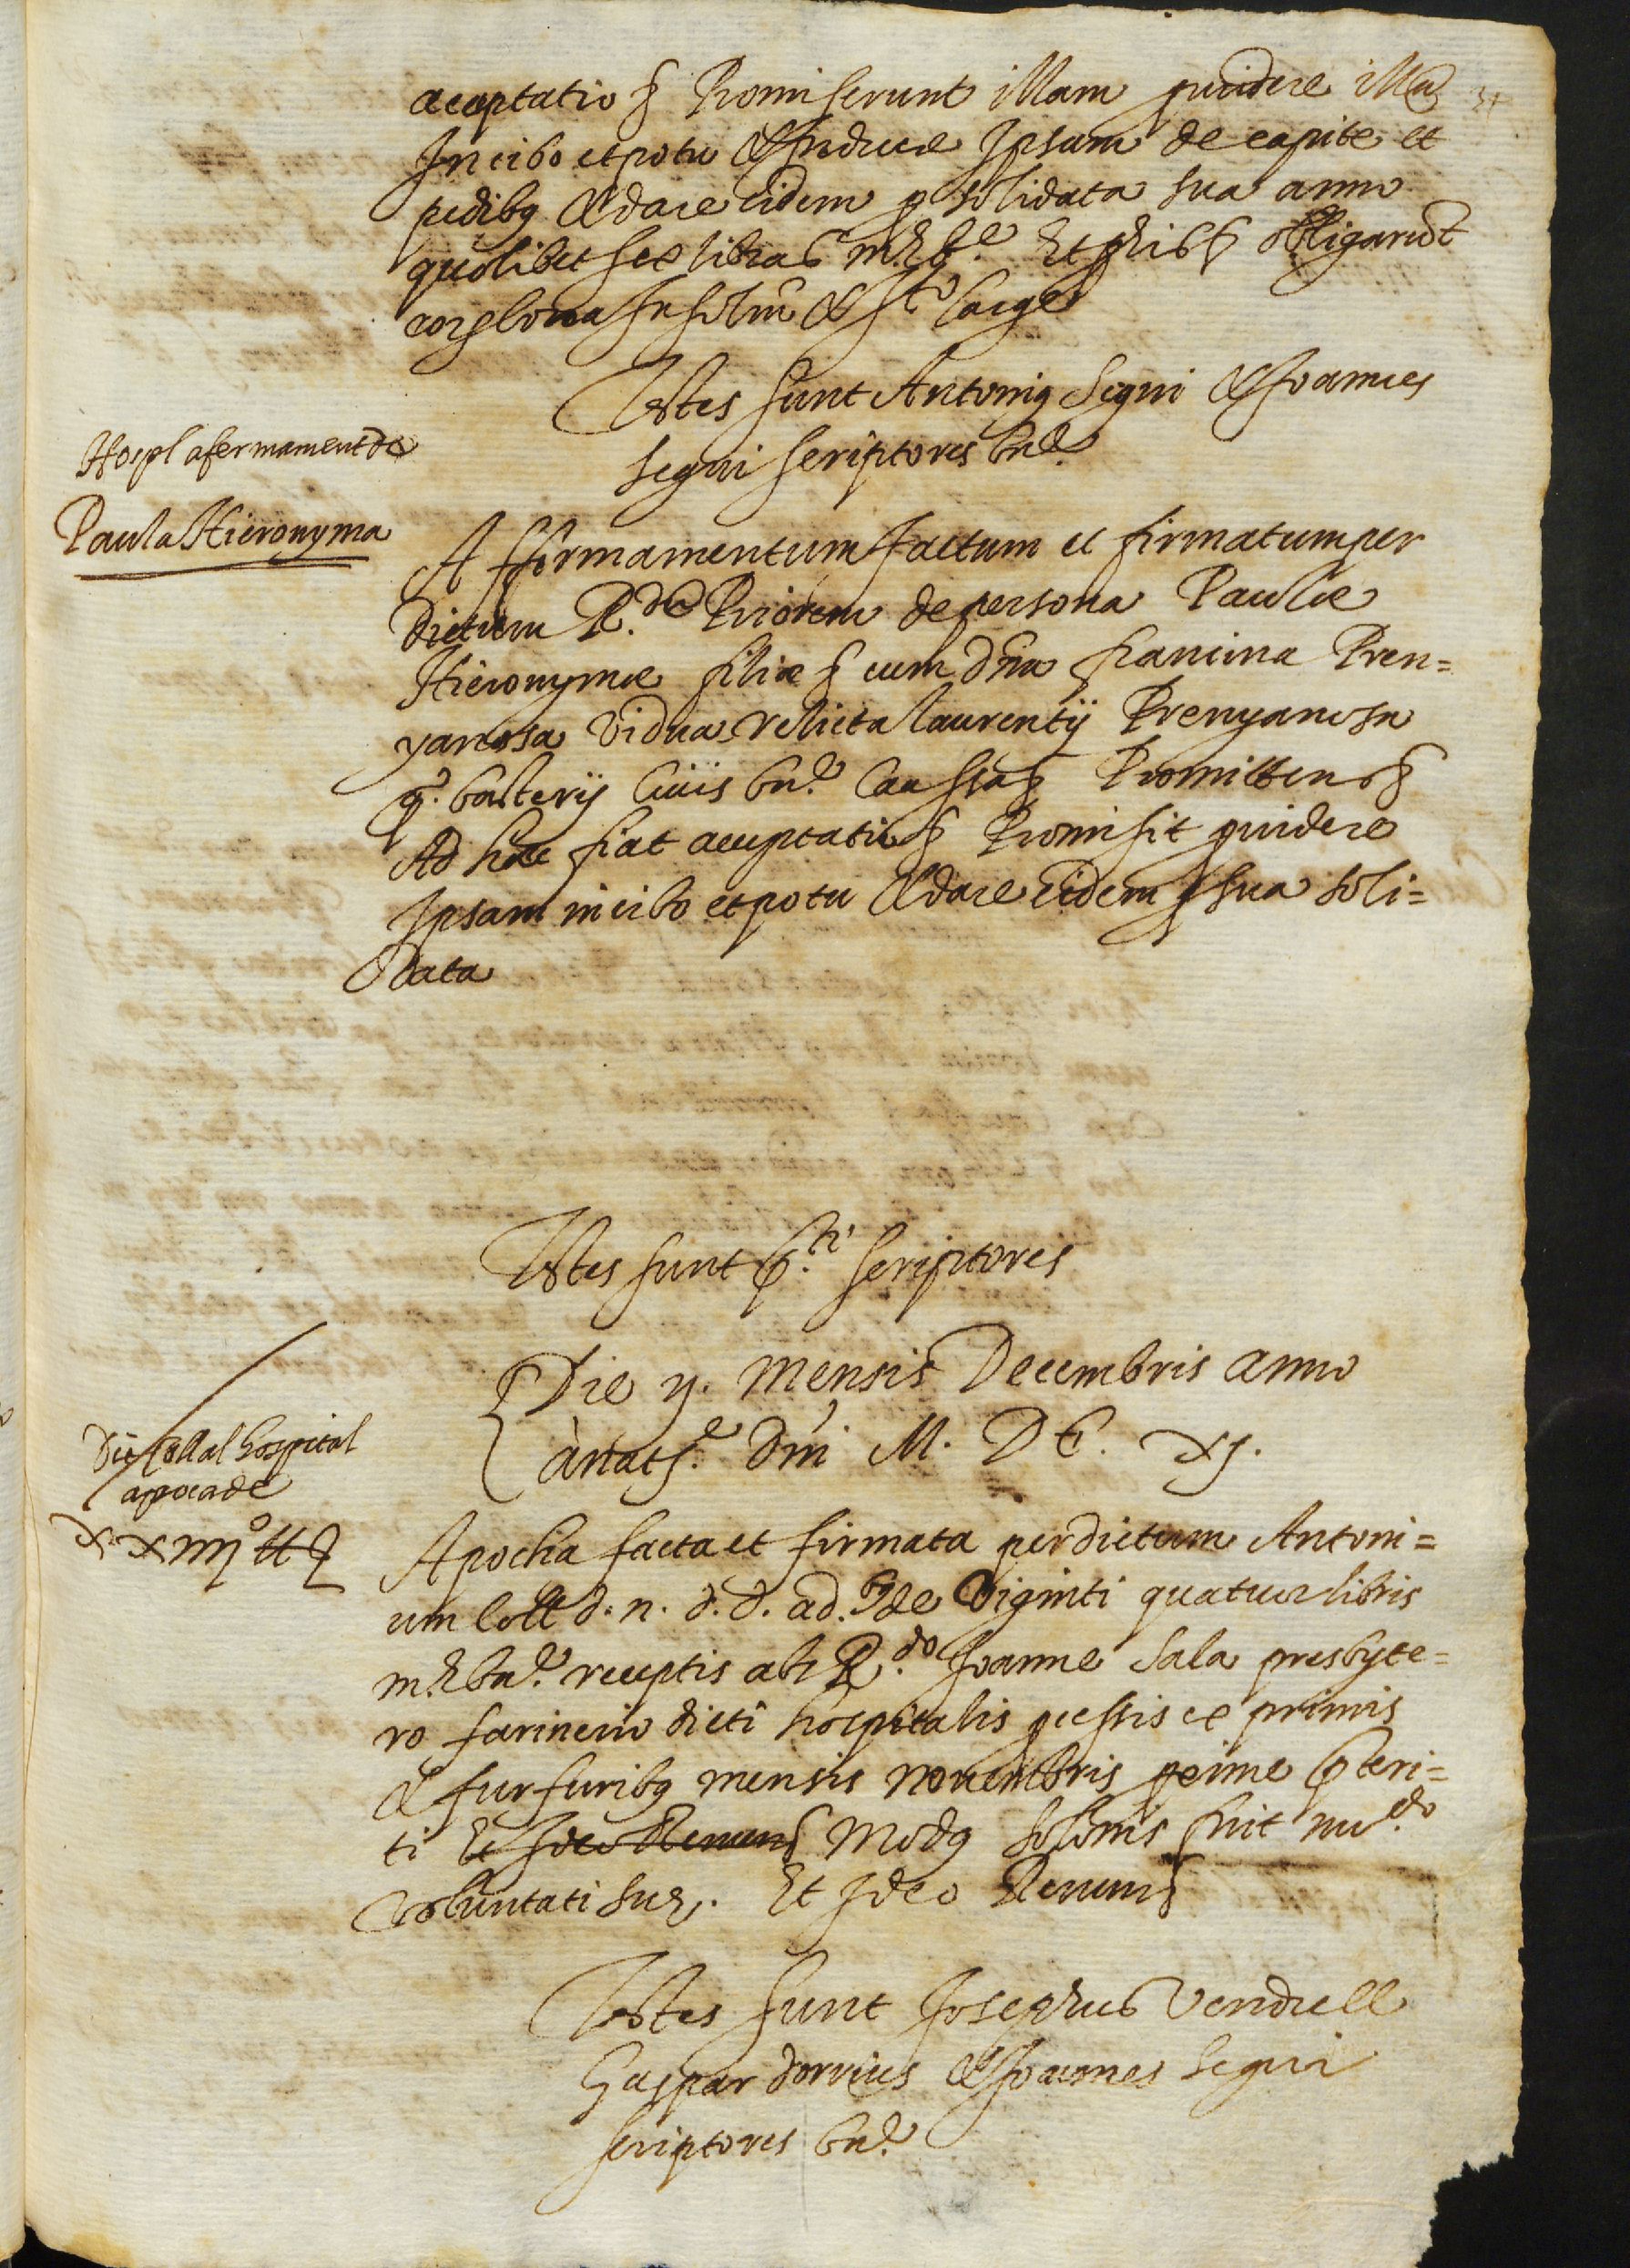 aceptatio § Promiserunt illam puidere illā
In cibo et potu & Inducere Ipsam de capite et
pedibꝯ & dare eidem p solidata sua anno
quolibet sex libras
obligarūt
bona Insolm̄ & large
Testes sunt Antoniꝯ Segui & Joannes
Segui scriptores bnē
Hospl afermament de
Paula Hieronyma
Affirmamentum factum et firmatum per
dictum R.dū Priorem de persona Paulæ
Hieronymæ filiæ § cum dn̄a francina Pren=
yanosa vidua relicta Laurentij Prenyanosa
q.º balisterij Ciuis bnē. Caussa § Promittens §
Ad hæc fiat aceptatio § Promisit puidere
Ipsam in cibo et potu & dare eidem p sua soli=
data
Testes sunt p.ti scriptores
Die y. mensis Decembris anno
à natt.e Dn̄i M. DC. xj.
Dit Coll al hospital
apoca de
xxiiijº ℔ §
Apocha facta et firmata per dictum Antoni=
um Coll d. n. d. d. ad. de Viginti quatuor libris
m. & bnē. receptis ab R.do Joanne Sala presbyte=
ro farinerio dicti hospitalis pcessis ex primis
& furfuribꝯ mensis nouembris pxime p̄teri=
ti Et Ideo Renun§ Modꝯ solōnis fuit nu.do
Voluntati suæ. Et Ideo Renun§
Testes sunt Josephus Vendrell
Gaspar dorrius & Joannes Segui
scriptores bnē